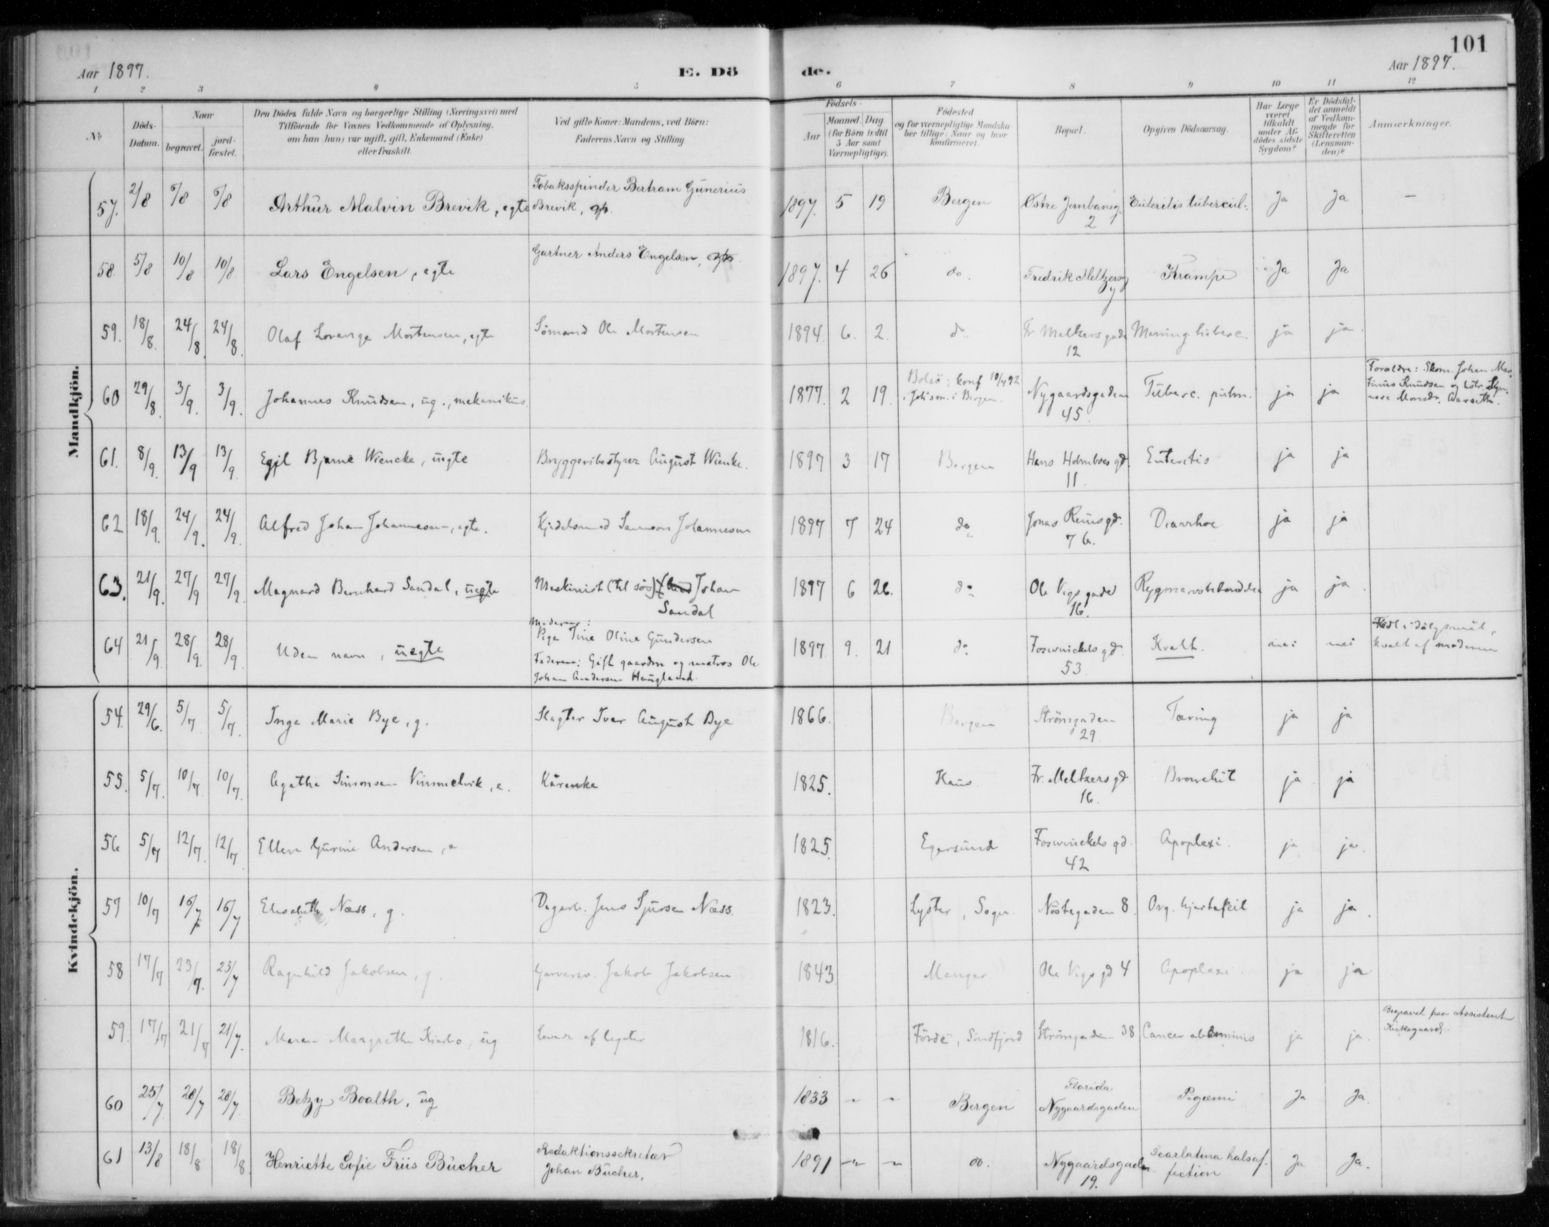 101
Aar 1897.
E. Döde.
Aar 1897.
1 2 3 4 5 6 7 8 9 10 11 12
№ Döds-Datum. Naar begravet. jord-fæstet. Den Dödes fulde Navn og borgerlige Stilling (Næringsvei) med Tilföiende for Voxnes Vedkommende af Oplysning, om han (hun) var ugift, gift, Enkemand (Enke) eller fraskilt. Ved gifte Koner: Mandens, ved Börn: Faderens Navn og Stilling Födsels- Aar Maaned Dag (for Börn indtil 5 Aar samt Værnepligtige). Födested og for værnepligtige Mandskaber tillige: Naar og hvor konfirmeret. Bopæl. Opgiven Dödsaarsag. Har Læge været tilkaldt under Afdödes sidste Sygdom? Er Dödsfaldet anmeldt af Vedkommende for Skifteretten (Lensmanden)? Anmærkninger.
Mandkjön.
57. 2/8 6/8 6/8 Arthur Malvin Brevik, egte Tobaksspinder Bertram Gunerius Brevik, 1897. 5 19 Bergen Östre 2 Enteritis tubercul. Ja Ja –
58. 5/8 10/8 10/8 Lars Engelsen, egte Gartner Anders Engelsen, 1897. 4 26 do. Fredrik Meltzersg 7 Krampe Ja Ja
59. 18/8. 24/8. 24/8. Olaf Mortensen, egte Sömand Ole Mortensen 1894 6. 2. do Fr. Meltzers gade 12 Mening tuberc. ja ja.
60 29/8. 3/9. 3/9. Johannes Knudsen, ug., mekanikus 1877. 2 19. Bolsö: konf 10/4 92 i Bergen. Nygaardsgaden 45 Tuberc. pulm. ja ja Forældre: Skom. Johan Knudsen og
61. 8/9. 13/9 13/9. Egil Bjarne Wiencke, uegte Bryggeribestyrer August Wienke. 1897 3 17 Bergen Hans Holmboes gd. 11. Enteritis ja ja
62 18/9. 24/9. 24/9. Alfred Johan Johannesen, egte. Johannesen 1897 7 24 do Jonas Reins gd. 7 b. Diarrhoe ja ja
63. 21/9. 27/9 27/9. Magnard Bernhard Sandal, uegte Maskinist (til sös) Johan Sandal 1897 6 26. do Ole Vigs gade 16. Rygmarvsbetændelse ja ja
64 21/9. 28/9. 28/9. Uden navn, uegte Moderens: Pige Tine Oline Gundersen Faderens: Gift gaardm og matros Ole Johan Andersen Haugland. 1897 9. 21 do Foswinckels gd. 53 Kvalt. nei nei kvalt af moderen
Kvindekjön.
54. 29/6. 5/7. 5/7. Inga Marie Bye, g. Slagter Iver August Bye 1866. Bergen Strömgaden 29. Tæring ja ja
55. 5/7. 10/7 10/7. Agathe Simonsen Vinmelvik, e. Kårenke 1825. Haus Fr. Meltzers gd. 16. Bronchit ja ja
56 5/7 12/7. 12/7. Ellen Gurine Andersen, e 1825. Egersund Foswinckels gd. 42 Apoplexi. ja ja.
57 10/7 16/7 16/7 Elisabeth Næss, g. Dagarb. Jens Sjursen Næss. 1823. Lyster, Sogn Nöstegaden 8. Org. hjertefeil ja ja.
58 17/7 23/7. 23/7 Ragnhild Jakobsen, g. Jakob Jakobsen 1843 Manger Ole Vigs gd 4 Apoplexi. ja ja
59. 17/7 21/7 21/7. Maren Margrethe, ug Levede af legater 1816. Förde, Söndfjord Strömgaden 38 Cancer abdominis ja ja. Begravet paa Assistent Kirkegaard.
60 25/7 28/7 28/7. Betzy Boalth, ug 1833 – – Bergen Florida Nygaardsgaden Pyæmi Ja Ja.
61 13/8 18/8 18/8 Henriette Sofie Friis Bücher Redaktionssekretær Johan Bücher. 1891 – – do. Nygaardsgaden 19. Scarlatina halsaffection Ja Ja.